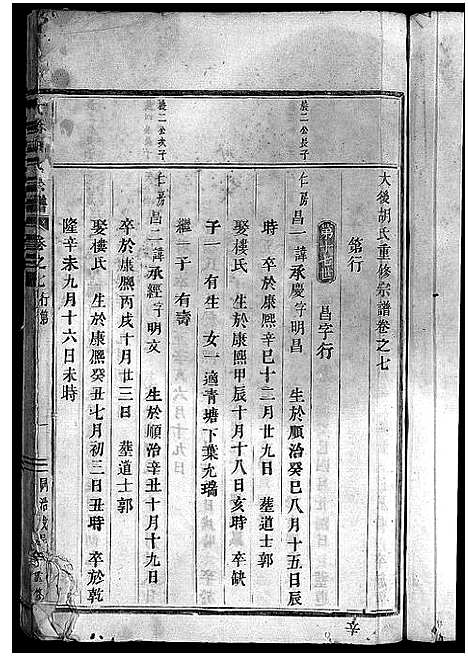 大後胡氏重修宗譜卷之七
第行
昌字行
松二公長子
仁房
昌一諱承慶字明昌 生於順治癸巳八月十五日辰
時 卒於康熙辛巳十二月廿九日 塟道士郭
娶樓氏 生於康熙甲辰十月十八日亥時 卒缺
子一 有生 女一適青塘下葉允璠
繼一子 有壽
松二公次子
仁房
昌二諱承經字明文 生於順治辛丑十月十九日
卒於康熙丙戌十月廿三日 塟道士郭
娶樓氏 生於康熙癸丑七月初三日丑時 卒於乾
隆辛未九月十六日未時
卷之七行第
一
同治